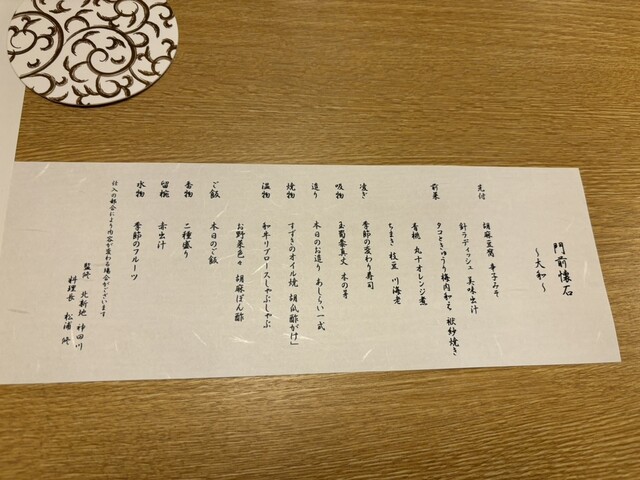 門前懐石
～大和～
先付 胡麻豆腐 辛子みそ
針ラディッシュ 美味出汁
前菜 タコときゅうり梅肉和え 袱紗焼き
青梗 丸十オレンジ煮
ちまき 枝豆 川海老
凌ぎ 季節の変わり寿司
吸物 玉蜀黍真丈 木の芽
造り 本日のお造り あしらい一式
焼物 すずきのオイル焼 胡瓜酢がけ」
温物 和牛リブロースしゃぶしゃぶ
お野菜色々 胡麻ぽん酢
ご飯 本日のご飯
香物 二種盛り
留椀 赤出汁
水物 季節のフルーツ
仕入の都合により内容が変わる場合がございます
監修 北新地 神田川
料理長 松浦 修